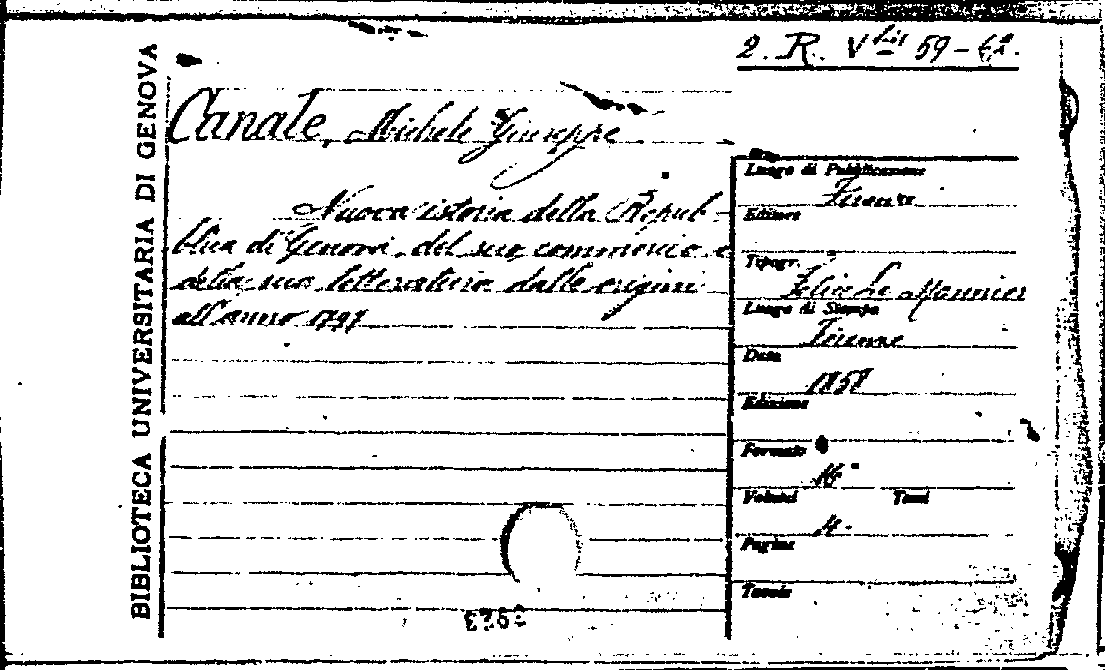 2. R. V bis 59-62.
BIBLIOTECA UNIVERSITARIA DI GENOVA
Canale, Michele Giuseppe
Nuova istoria della Repub-
blica di Genova, del suo commercio e
della sua letteratura dalle origini
all'anno 1797
Luogo di Pubblicazione
Firenze
Editore
Tipogr.
Felice Le Monnier
Luogo di Stampa
Firenze
Data
1858
Edizione
Formato
16°
Volumi Tomi
4.
Pagine
Tavole